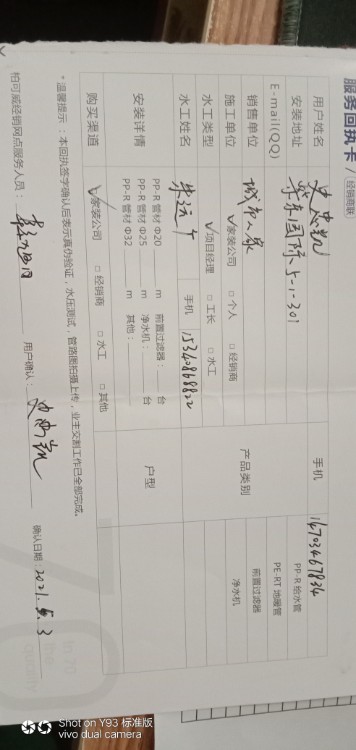 服务回执卡 / 经销商联
用户姓名 史忠凯 手机 14703467834
安装地址 紫东国际5-1-301
E-mail(QQ)
销售单位 城市人家 产品类别 PP-R 给水管
施工单位 ☑家装公司 □个人 □经销商 PE-RT 地暖管
水工类型 ☑项目经理 □工长 □水工 前置过滤器
水工姓名 手机 15340868822 净水机
安装详情 PP-R 管材 Φ20 m 前置过滤器: 台 户型
PP-R 管材 Φ25 m 净水机: 台
PP-R 管材 Φ32 m 其他:
购买渠道 ☑家装公司 □经销商 □水工 □其他
*温馨提示:本回执签字确认后表示真伪验证,水压测试,管路图拍摄上传,业主交割工作已全部完成。
柏可威经销网点服务人员: 用户确认: 史忠凯 确认日期: 2021.5.3
Shot on Y93 标准版
vivo dual camera